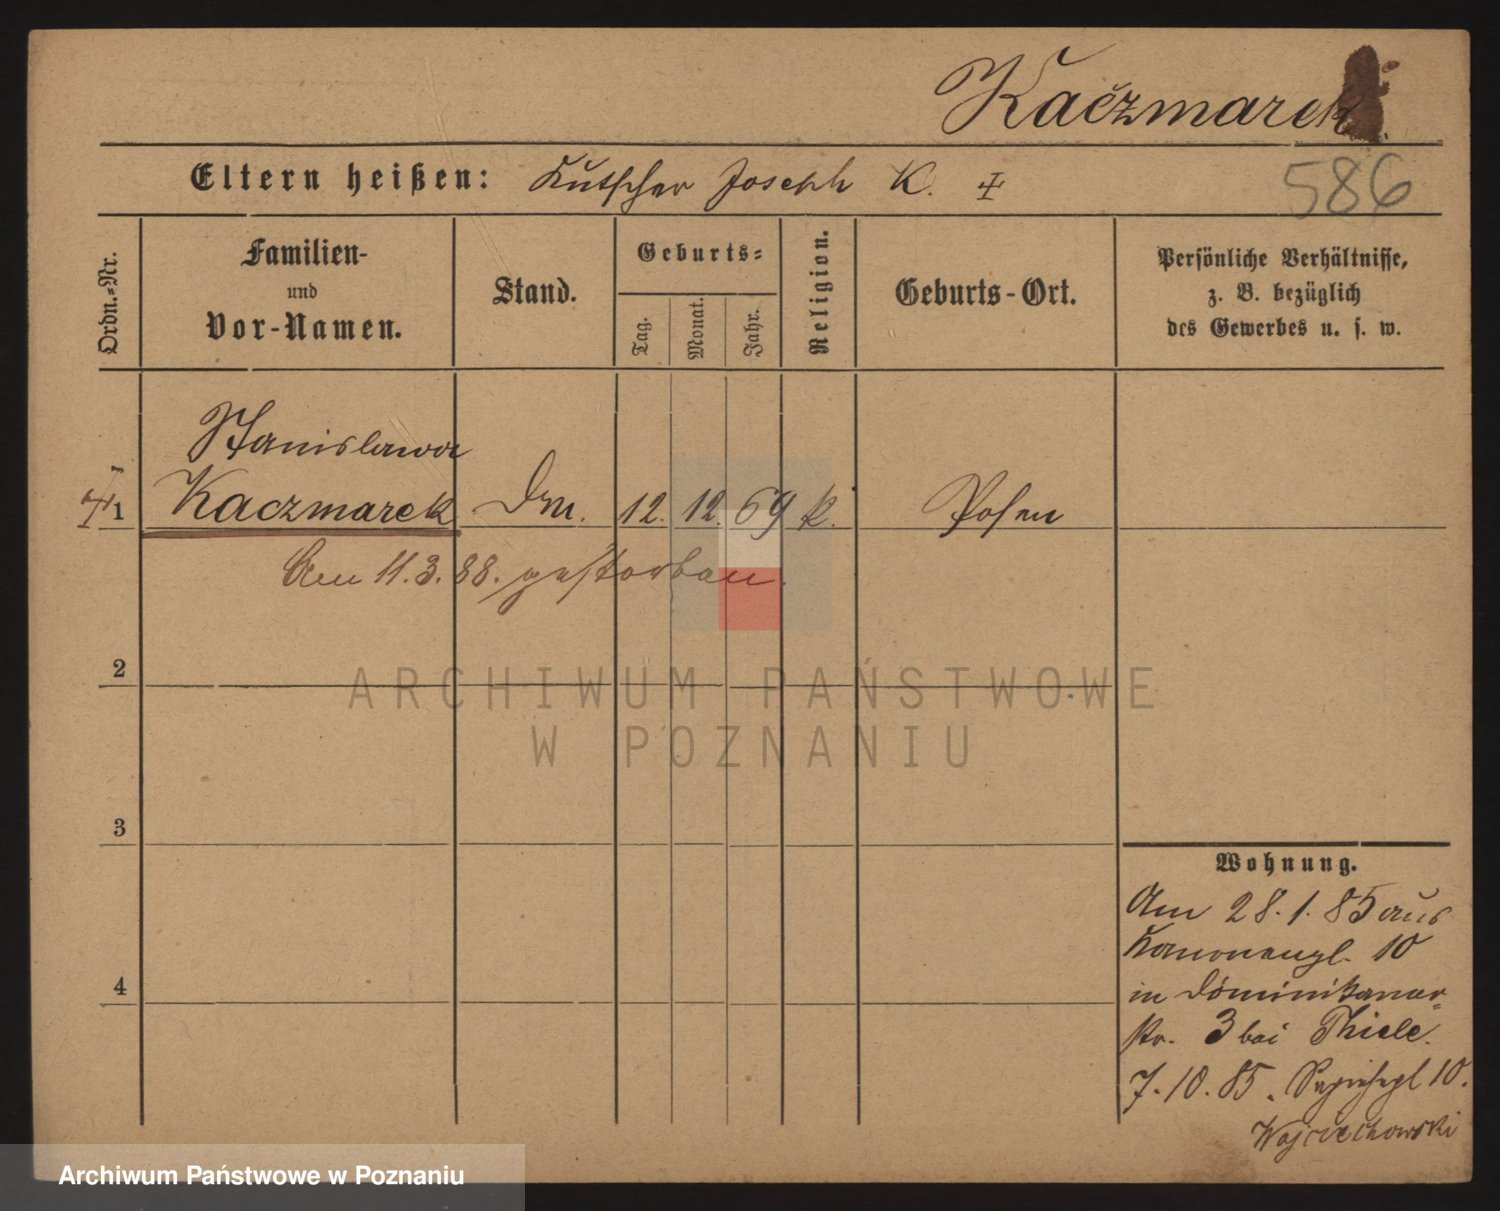 Kaczmarek
Eltern heißen: Kutscher Joseph K. ‡
586
Ordn.-Nr.
Familien-
und
Vor-Namen.
Stand.
Geburts-
Tag.
Monat.
Jahr.
Religion.
Geburts-Ort.
Persönliche Verhältnisse,
z. B. bezüglich
des Gewerbes u. s. w.
Stanislawa
1 Kaczmarek 12. 12. 69 k. Posen
Am 11.3.88. gestorben.
2
ARCHIWUM PAŃSTWOWE
W POZNANIU
3
4
Wohnung.
Am 28.1.85 aus
Kanonenpl. 10
in Dominikaner-
str. 3 bei Thiele.
7.10.85. Sapiehapl 10.
Wojciechowski
Archiwum Państwowe w Poznaniu